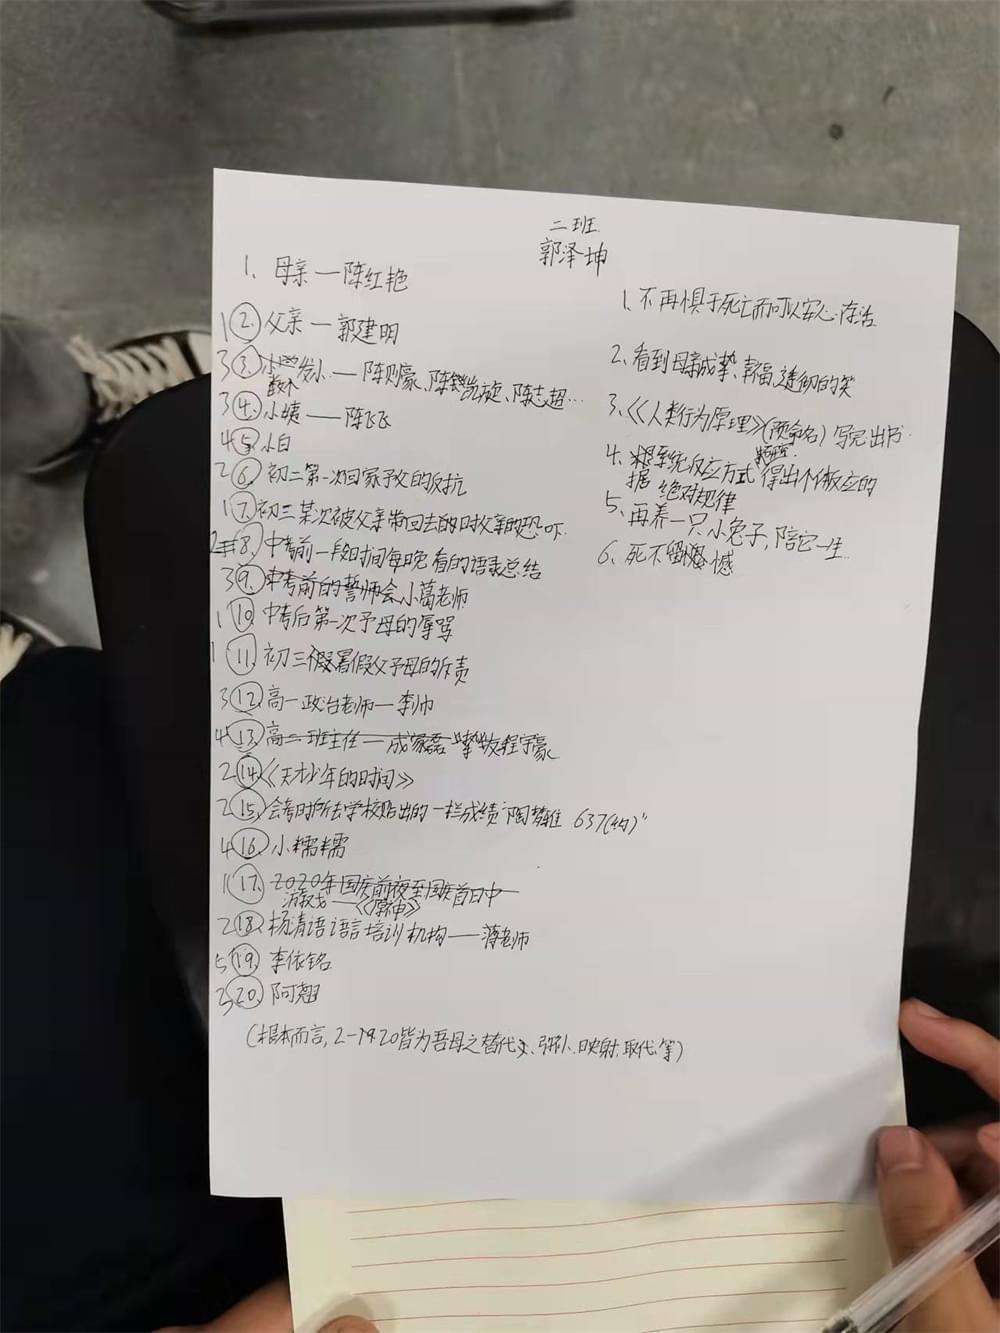 二班
郭泽坤
1. 母亲—陈红艳
1 ②. 父亲—郭建明
3 ③. 发小—陈则豪、陈凯旋、陈志超...
数个
3 ④. 小姨——陈飞飞
4 ⑤. 小白
2 ⑥. 初二第一次回家予父的反抗
1 ⑦. 初三某次被父亲带回去的时父亲的恐吓.
2 ⑧. 中考前一段时间每晚看的语录总结
3 ⑨. 中考前的誓师会、小葛老师
1 ⑩. 中考后第一次予母的辱骂
1 ⑪. 初三暑假父予母的斥责
3 ⑫. 高一政治老师—李帅
4 ⑬. 高二班主任—成家磊 挚友程宇豪
2 ⑭. 《天才少年的时间》
2 ⑮. 会考时所去学校贴出的一栏成绩“陶梦维 637(约)”
4 ⑯. 小糯糯
1 ⑰. 2020年国庆前夜至国庆首日中
游戏——《原神》
2 ⑱. 杨清语语言培训机构——薄老师
5 ⑲. 李依铭
⑳. 阿翘
(根本而言, 2-20皆为吾母之替代、弥补、映射、取代等)
1、不再惧于死亡而可以安心存活
2、看到母亲成挚、幸福、透彻的笑
3、《人类行为原理》(预命名) 写完出书.
4、根据系统反应方式得出个体反应的
绝对规律
5、再养一只小兔子, 陪它一生..
6、死不留遗憾